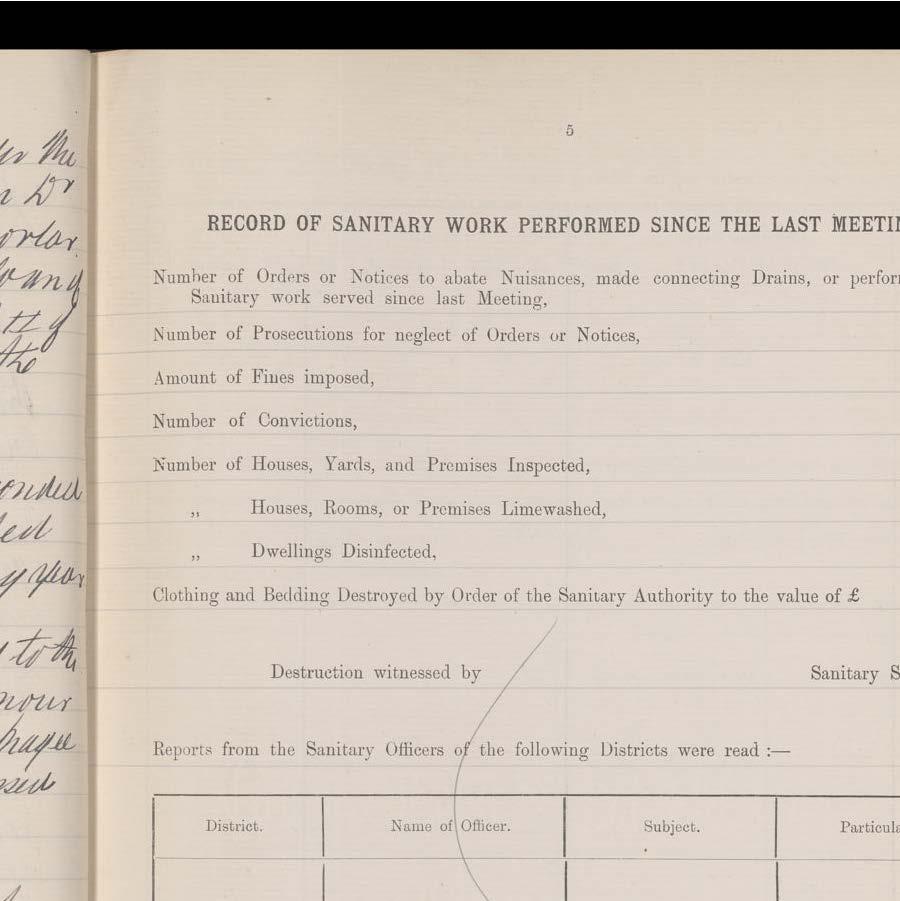 5
RECORD OF SANITARY WORK PERFORMED SINCE THE LAST MEETIN
Number of Orders or Notices to abate Nuisances, made connecting Drains, or perfor
Sanitary work served since last Meeting,
Number of Prosecutions for neglect of Orders or Notices,
Amount of Fines imposed,
Number of Convictions,
Number of Houses, Yards, and Premises Inspected,
„ Houses, Rooms, or Premises Limewashed,
„ Dwellings Disinfected,
Clothing and Bedding Destroyed by Order of the Sanitary Authority to the value of £
Destruction witnessed by Sanitary S
Reports from the Sanitary Officers of the following Districts were read :—
District. Name of Officer. Subject. Particula
the
Dr
and
the
year
to the